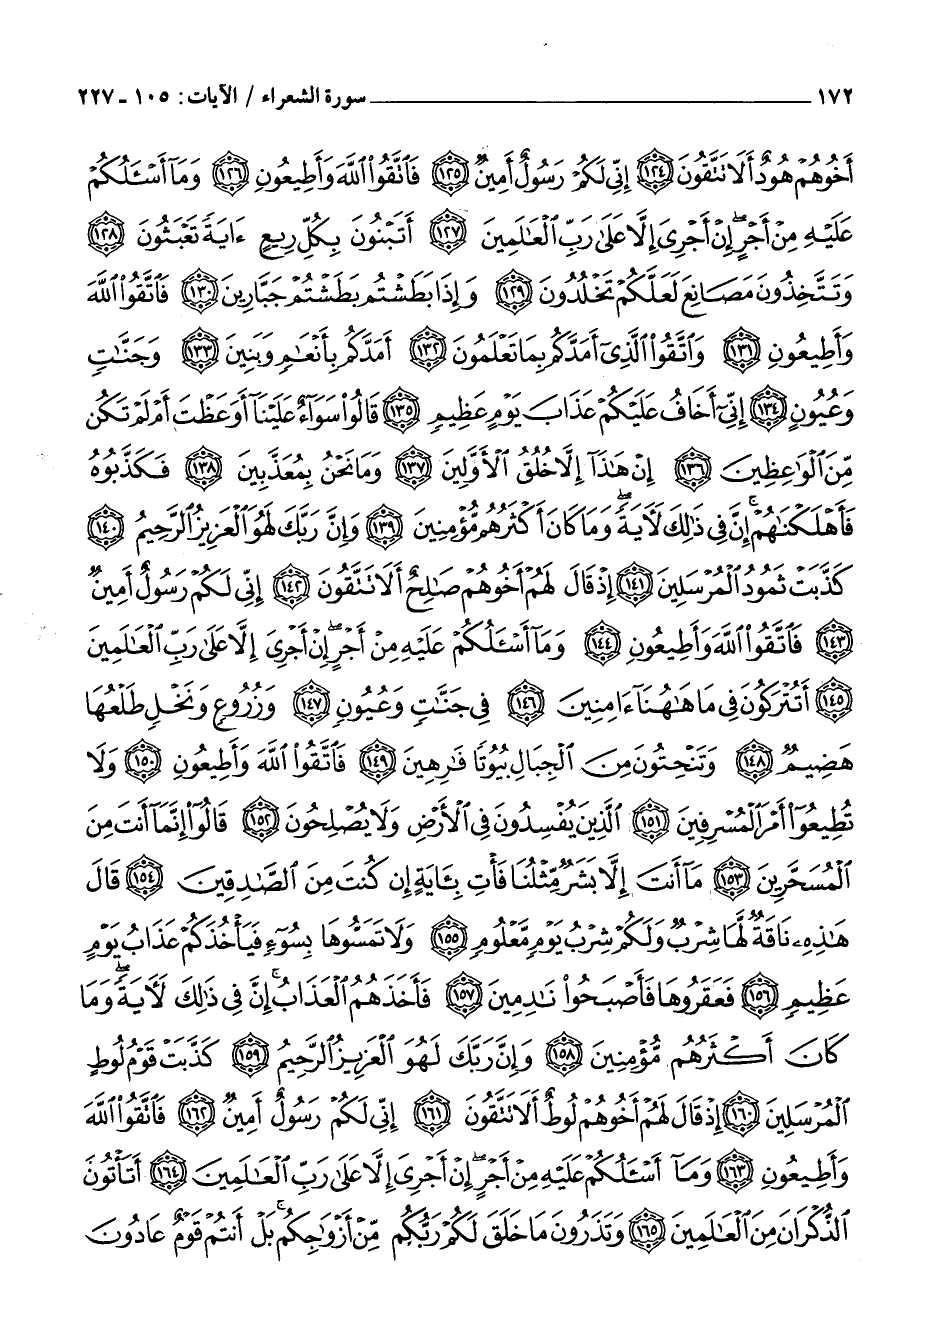 ١٧٢ ــــــــــــــــــــ سورة الشعراء / الآيات: ١٠٥ - ٢٢٧
أَخُوهُمْ هُودٌ أَلَا تَتَّقُونَ ﴿١٢٤﴾ إِنِّي لَكُمْ رَسُولٌ أَمِينٌ ﴿١٢٥﴾ فَاتَّقُوا اللَّهَ وَأَطِيعُونِ ﴿١٢٦﴾ وَمَا أَسْئَلُكُمْ
عَلَيْهِ مِنْ أَجْرٍ إِنْ أَجْرِيَ إِلَّا عَلَى رَبِّ الْعَالَمِينَ ﴿١٢٧﴾ أَتَبْنُونَ بِكُلِّ رِيعٍ ءَايَةً تَعْبَثُونَ ﴿١٢٨﴾
وَتَتَّخِذُونَ مَصَانِعَ لَعَلَّكُمْ تَخْلُدُونَ ﴿١٢٩﴾ وَإِذَا بَطَشْتُم بَطَشْتُمْ جَبَّارِينَ ﴿١٣٠﴾ فَاتَّقُوا اللَّهَ
وَأَطِيعُونِ ﴿١٣١﴾ وَاتَّقُوا الَّذِي أَمَدَّكُم بِمَا تَعْلَمُونَ ﴿١٣٢﴾ أَمَدَّكُم بِأَنْعَامٍ وَبَنِينَ ﴿١٣٣﴾ وَجَنَّاتٍ
وَعُيُونٍ ﴿١٣٤﴾ إِنِّي أَخَافُ عَلَيْكُمْ عَذَابَ يَوْمٍ عَظِيمٍ ﴿١٣٥﴾ قَالُوا سَوَاءٌ عَلَيْنَا أَوَعَظْتَ أَمْ لَمْ تَكُن
مِّنَ الْوَاعِظِينَ ﴿١٣٦﴾ إِنْ هَٰذَا إِلَّا خُلُقُ الْأَوَّلِينَ ﴿١٣٧﴾ وَمَا نَحْنُ بِمُعَذَّبِينَ ﴿١٣٨﴾ فَكَذَّبُوهُ
فَأَهْلَكْنَاهُمْ إِنَّ فِي ذَٰلِكَ لَآيَةً وَمَا كَانَ أَكْثَرُهُم مُّؤْمِنِينَ ﴿١٣٩﴾ وَإِنَّ رَبَّكَ لَهُوَ الْعَزِيزُ الرَّحِيمُ ﴿١٤٠﴾
كَذَّبَتْ ثَمُودُ الْمُرْسَلِينَ ﴿١٤١﴾ إِذْ قَالَ لَهُمْ أَخُوهُمْ صَالِحٌ أَلَا تَتَّقُونَ ﴿١٤٢﴾ إِنِّي لَكُمْ رَسُولٌ أَمِينٌ
﴿١٤٣﴾ فَاتَّقُوا اللَّهَ وَأَطِيعُونِ ﴿١٤٤﴾ وَمَا أَسْئَلُكُمْ عَلَيْهِ مِنْ أَجْرٍ إِنْ أَجْرِيَ إِلَّا عَلَى رَبِّ الْعَالَمِينَ
﴿١٤٥﴾ أَتُتْرَكُونَ فِي مَا هَاهُنَا ءَامِنِينَ ﴿١٤٦﴾ فِي جَنَّاتٍ وَعُيُونٍ ﴿١٤٧﴾ وَزُرُوعٍ وَنَخْلٍ طَلْعُهَا
هَضِيمٌ ﴿١٤٨﴾ وَتَنْحِتُونَ مِنَ الْجِبَالِ بُيُوتًا فَارِهِينَ ﴿١٤٩﴾ فَاتَّقُوا اللَّهَ وَأَطِيعُونِ ﴿١٥٠﴾ وَلَا
تُطِيعُوا أَمْرَ الْمُسْرِفِينَ ﴿١٥١﴾ الَّذِينَ يُفْسِدُونَ فِي الْأَرْضِ وَلَا يُصْلِحُونَ ﴿١٥٢﴾ قَالُوا إِنَّمَا أَنتَ مِنَ
الْمُسَحَّرِينَ ﴿١٥٣﴾ مَا أَنتَ إِلَّا بَشَرٌ مِّثْلُنَا فَأْتِ بِئَايَةٍ إِن كُنتَ مِنَ الصَّادِقِينَ ﴿١٥٤﴾ قَالَ
هَٰذِهِ نَاقَةٌ لَّهَا شِرْبٌ وَلَكُمْ شِرْبُ يَوْمٍ مَّعْلُومٍ ﴿١٥٥﴾ وَلَا تَمَسُّوهَا بِسُوءٍ فَيَأْخُذَكُمْ عَذَابُ يَوْمٍ
عَظِيمٍ ﴿١٥٦﴾ فَعَقَرُوهَا فَأَصْبَحُوا نَادِمِينَ ﴿١٥٧﴾ فَأَخَذَهُمُ الْعَذَابُ إِنَّ فِي ذَٰلِكَ لَآيَةً وَمَا
كَانَ أَكْثَرُهُم مُّؤْمِنِينَ ﴿١٥٨﴾ وَإِنَّ رَبَّكَ لَهُوَ الْعَزِيزُ الرَّحِيمُ ﴿١٥٩﴾ كَذَّبَتْ قَوْمُ لُوطٍ
الْمُرْسَلِينَ ﴿١٦٠﴾ إِذْ قَالَ لَهُمْ أَخُوهُمْ لُوطٌ أَلَا تَتَّقُونَ ﴿١٦١﴾ إِنِّي لَكُمْ رَسُولٌ أَمِينٌ ﴿١٦٢﴾ فَاتَّقُوا اللَّهَ
وَأَطِيعُونِ ﴿١٦٣﴾ وَمَا أَسْئَلُكُمْ عَلَيْهِ مِنْ أَجْرٍ إِنْ أَجْرِيَ إِلَّا عَلَى رَبِّ الْعَالَمِينَ ﴿١٦٤﴾ أَتَأْتُونَ
الذُّكْرَانَ مِنَ الْعَالَمِينَ ﴿١٦٥﴾ وَتَذَرُونَ مَا خَلَقَ لَكُمْ رَبُّكُم مِّنْ أَزْوَاجِكُم بَلْ أَنتُمْ قَوْمٌ عَادُونَ